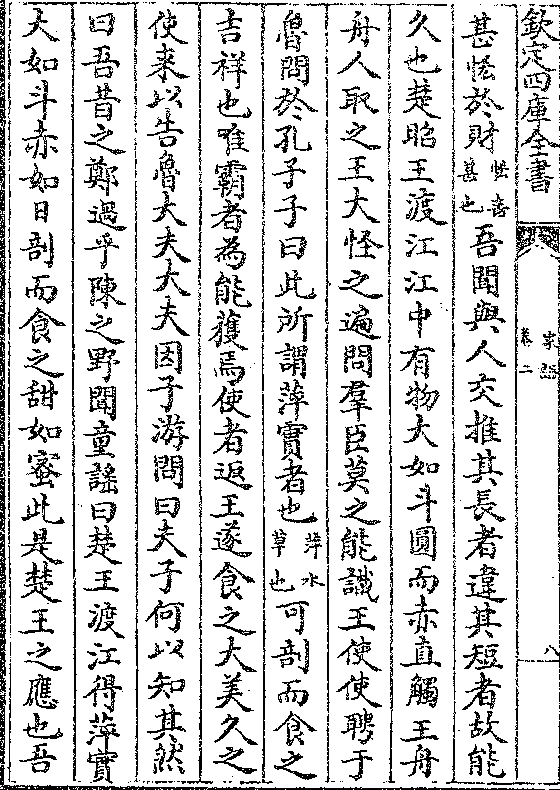 欽定四庫全書
家語
卷二
八
甚恡於財恡嗇甚也吾聞與人交推其長者違其短者故能
久也楚昭王渡江江中有物大如斗圓而赤直觸王舟
舟人取之王大怪之遍問羣臣莫之能識王使使聘于
魯問於孔子子曰此所謂萍實者也萍水草也可剖而食之
吉祥也唯霸者為能獲焉使者返王遂食之大美久之
使來以告魯大夫大夫因子游問曰夫子何以知其然
曰吾昔之鄭過乎陳之野聞童謠曰楚王渡江得萍實
大如斗赤如日剖而食之甜如蜜此是楚王之應也吾